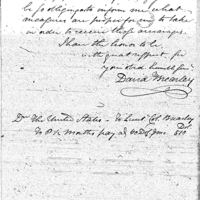 be so obliging to inform me what
measures are proper for me to take
in order to receive those arrearages.
I have the honor to be
with great respect Sir
your obed. humble serv.
David Brearley
Dr. The United States - To Lieut. Col. Brearley
To 8½ months pay at 60 Dolls